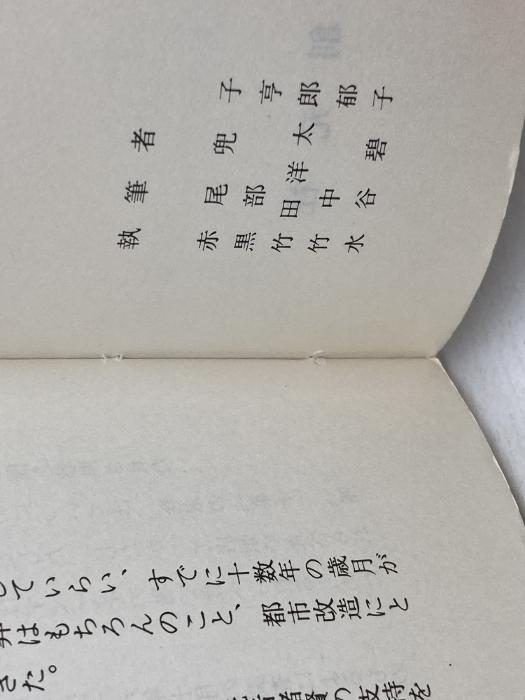 執筆者
赤尾兜子
黒部亨
竹田洋太郎
竹中郁
水谷碧子
していらい、すでに十数年の歳月が
はもちろんのこと、都市改造にと
きた。
の支持を